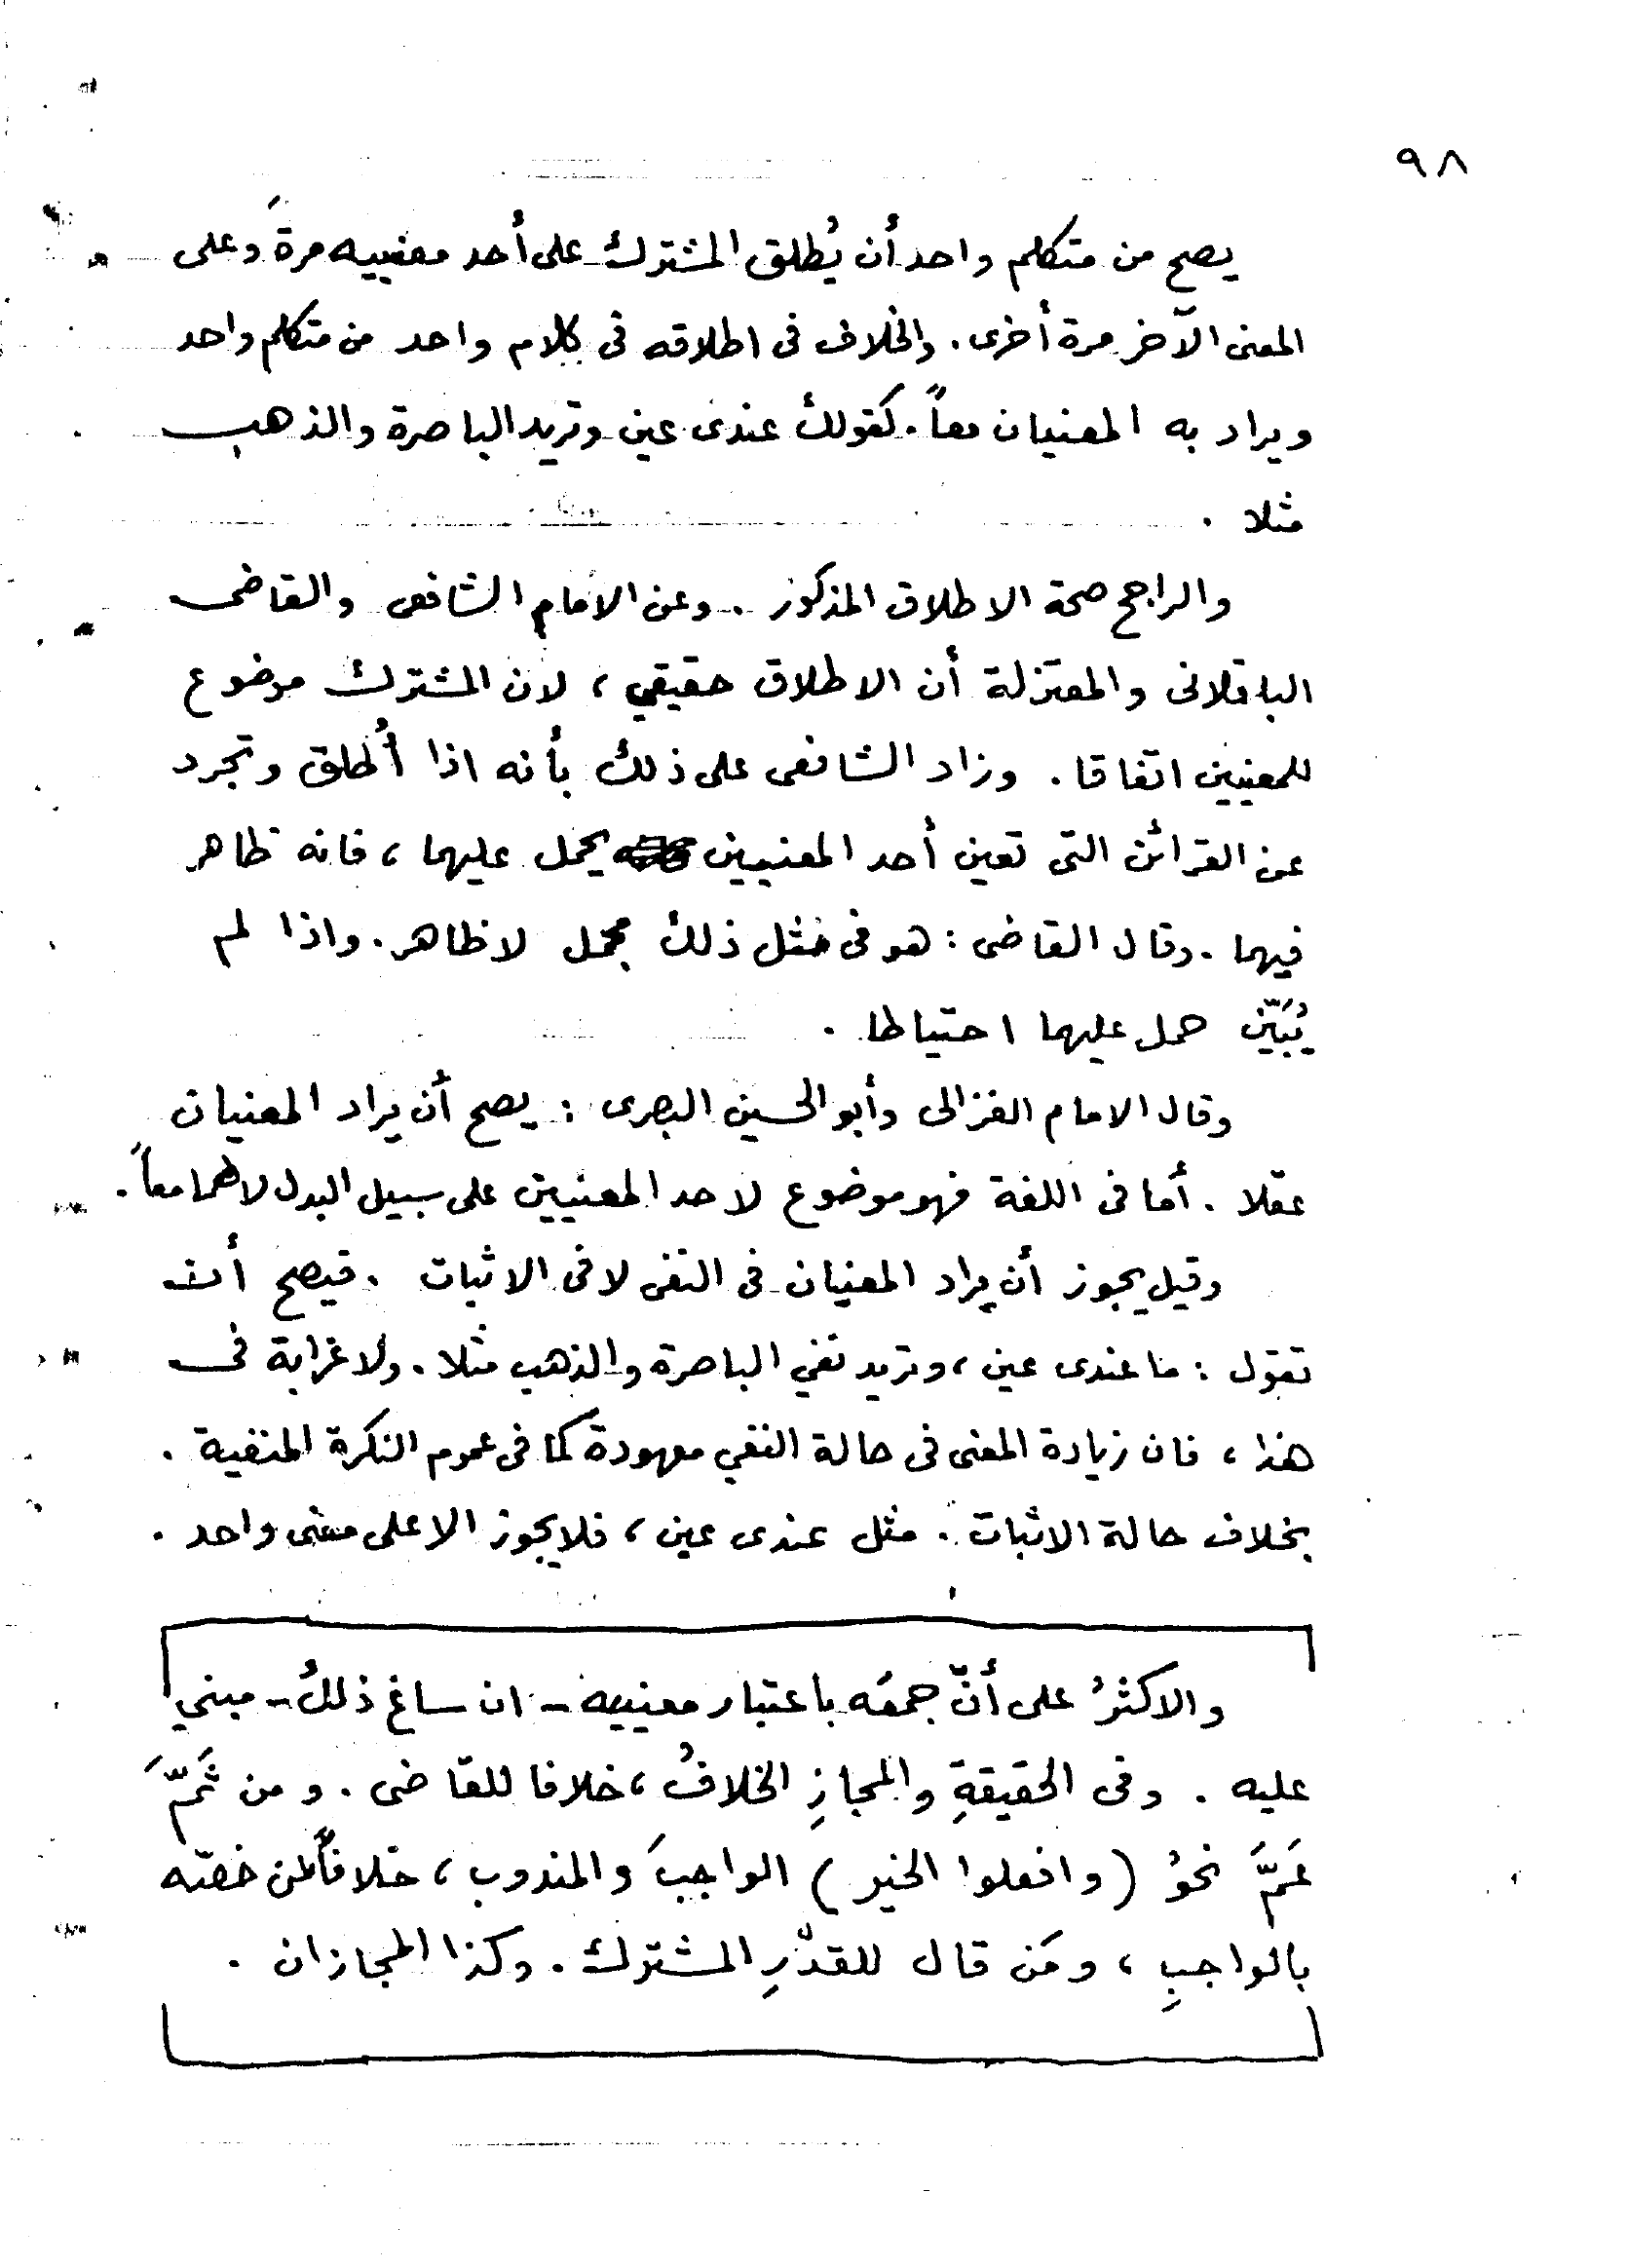 ٩٨
يصح من متكلم واحد أن يُطلق المشترك على أحد معنييه مرةً وعلى
المعنى الآخر مرة أخرى. والخلاف فى اطلاقه فى كلام واحد من متكلم واحد
ويراد به المعنيان معاً. كقولك عندى عين وتريد الباصرة والذهب
مثلا .
والراجح صحة الاطلاق المذكور . وعن الامام الشافعى والقاضى
الباقلانى والمعتزلة أن الاطلاق حقيقي ، لان المشترك موضوع
للمعنيين اتفاقا . وزاد الشافعى على ذلك بأنه اذا أُطلق وتجرد
عن القرائن التى تعين أحد المعنيين يحمل عليهما ، فانه ظاهر
فيهما . وقال القاضى : هو فى مثل ذلك مجمل لا ظاهر. واذا لم
يُبَيَّن حمل عليهما احتياطا .
وقال الامام الغزالى وأبو الحسين البصرى : يصح أن يراد المعنيان
عقلا . أما فى اللغة فهو موضوع لاحد المعنيين على سبيل البدل لا لهما معاً .
وقيل يجوز أن يراد المعنيان فى النفى لا فى الاثبات . فيصح أن
تقول : ما عندى عين ، وتريد نفي الباصرة والذهب مثلا . ولا غرابة فى
هذا ، فان زيادة المعنى فى حالة النفي معهودة كما فى عموم النكرة المنفية .
بخلاف حالة الاثبات . مثل عندى عين ، فلا يجوز الا على معنى واحد .
والاكثرُ على أنّ جمعَه باعتبار معنييه - ان ساغ ذلكُ - مبني
عليه . وفى الحقيقةِ والمجازِ الخلافُ ، خلافا للقاضى . ومن ثَمَّ
عَمَّ نحوُ (وافعلوا الخير) الواجبَ والمندوب ، خلافاً لمن خصّه
بالواجبِ ، ومَن قال للقدْرِ المشترك . وكذا المجازان .